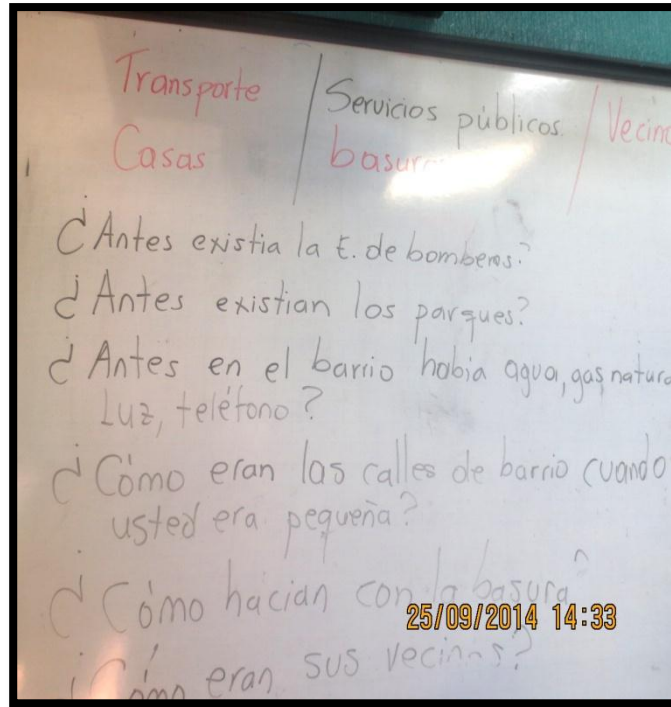 Transporte / Servicios públicos. / Vecino
Casas / basura
¿Antes existia la E. de bomberos?
¿Antes existian los parques?
¿Antes en el barrio habia agua, gas, natura
Luz, teléfono?
¿Cómo eran las calles de barrio cuando
usted era pequeña?
¿Cómo hacian con la basura?
25/09/2014 14:33
¿Cómo eran sus vecinos?